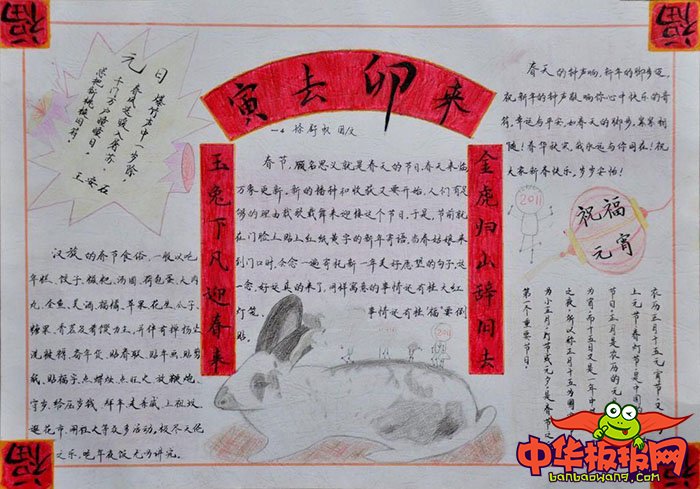 福
福
元日
爆竹声中一步除,
春风送暖入屠苏。
千门万户
总把新桃换旧符!
王安石
寅去卯来
玉兔下凡迎春来
金虎归山辞旧去
春节,顾名思义就是春天的节日,春天来临
万象更新,新的播种和收获又要开始,人们有足
够的理由载歌载舞来迎接这个节日,于是,节前就
在门脸上贴上红纸黄字的新年寄语,当春姑娘来
到门口时,会念一遍有祝新一年美好愿望的句子,这
一念,好运真的来了,同样寓意的事情还有挂大红
灯笼、
事情还有挂"福"要倒
贴。
2011
春天的钟声响,新年的脚步迈,
祝新年的钟声敲响你心中快乐的音
符,幸运与平安,如春天的脚步,紧紧相
随!春华秋实,我永远与你同在!祝
大家新春快乐,步步安怡!
2011
祝福
元宵
汉族的春节食俗,一般以吃
年糕、饺子、糍粑、汤圆、荷包蛋、大肉
丸、全鱼、美酒、福橘、苹果、花生、瓜子、
糖果、香茗及肴馔为主,并伴有掸扬尘、
洗被褥、备年货、贴春联、贴年画、贴剪
纸、贴福字、点蜡烛、点旺火、放鞭炮、
守岁、给压岁钱、拜年、走亲戚、上祖坟、
逛花市、闹社火等众多活动,极尽天伦
之乐,吃年夜饭尤为讲究。
农历正月十五元宵节,又
上元节,春灯节,是中国
节日,正月是农历的元
为宵,而十五日又是一年中
之夜,所以称正月十五为
为小正月,灯节或元夕,是春节之
第一个重要节日!
福
中华板报网
banbaowang.com